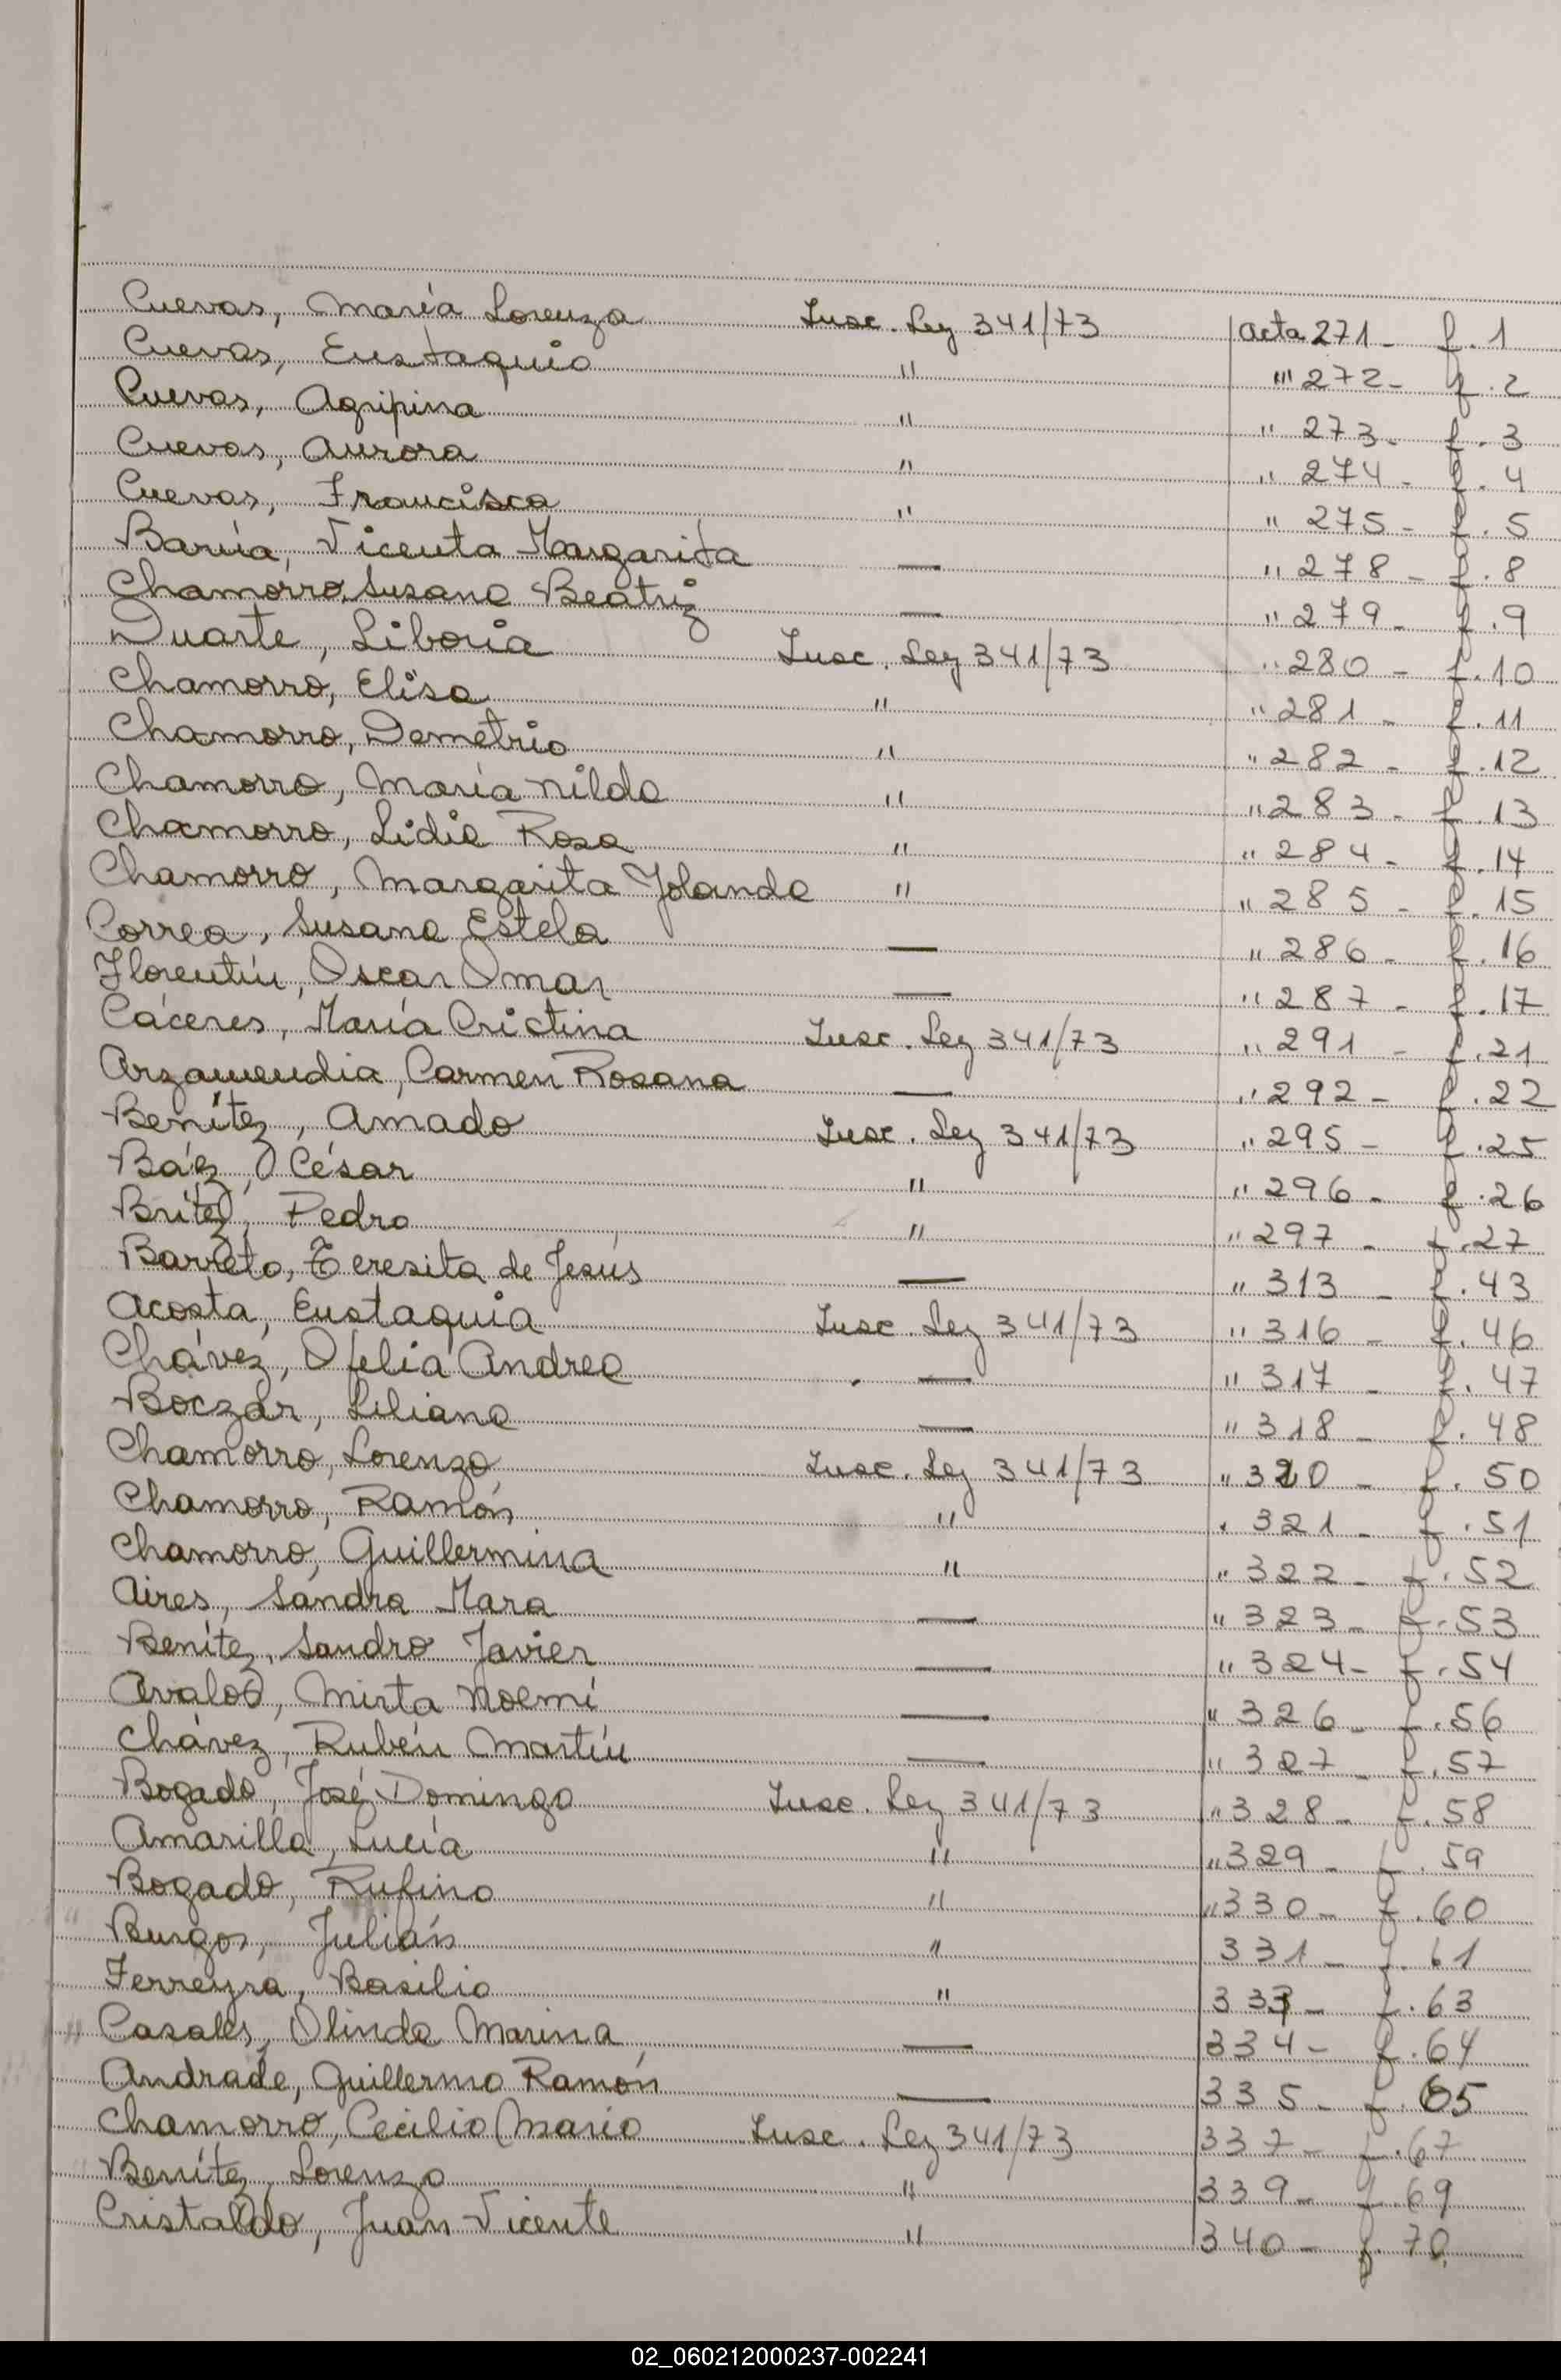 Cuevas, María Lorenza Insc. Ley 341/73 Acta 271 - f. 1
Cuevas, Eustaquio " "' 272 - f. 2
Cuevas, Agripina " " 273 - f. 3
Cuevas, Aurora " " 274 - f. 4
Cuevas, Francisca " " 275 - f. 5
Barúa, Vicenta Margarita — " 278 - f. 8
Chamorro, Susana Beatriz — " 279 - f. 9
Duarte, Liboria Insc. Ley 341/73 " 280 - f. 10
Chamorro, Elisa " " 281 - f. 11
Chamorro, Demetrio " " 282 - f. 12
Chamorro, María Nilda " " 283 - f. 13
Chamorro, Lidia Rosa " " 284 - f. 14
Chamorro, Margarita Yolanda " " 285 - f. 15
Correa, Susana Estela — " 286 - f. 16
Florentín, Oscar Omar — " 287 - f. 17
Cáceres, María Crictina Insc. Ley 341/73 " 291 - f. 21
Arzamendia, Carmen Rosana — " 292 - f. 22
Benítez, Amado Insc. Ley 341/73 " 295 - f. 25
Báez, César " " 296 - f. 26
Brítez, Pedro " " 297 - f. 27
Barreto, Teresita de Jesús — " 313 - f. 43
Acosta, Eustaquia Insc. Ley 341/73 " 316 - f. 46
Chávez, Ofelia Andrea — " 317 - f. 47
Boczar, Liliana — " 318 - f. 48
Chamorro, Lorenzo Insc. Ley 341/73 " 320 - f. 50
Chamorro, Ramón " " 321 - f. 51
Chamorro, Guillermina " " 322 - f. 52
Aires, Sandra Mara — " 323 - f. 53
Benítez, Sandro Javier — " 324 - f. 54
Avalos, Mirta Noemí — " 326 - f. 56
Chávez, Rubén Martín — " 327 - f. 57
Bogado, José Domingo Insc. Ley 341/73 " 328 - f. 58
Amarilla, Lucía " " 329 - f. 59
Bogado, Rufino " " 330 - f. 60
Burgos, Julián " 331 - f. 61
Ferreyra, Basilio " 333 - f. 63
Casales, Olinda Marina — 334 - f. 64
Andrade, Guillermo Ramón — 335 - f. 65
Chamorro, Cecilio Mario Insc. Ley 341/73 337 - f. 67
Benítez, Lorenzo " 339 - f. 69
Cristaldo, Juan Vicente " 340 - f. 70
02_060212000237-002241